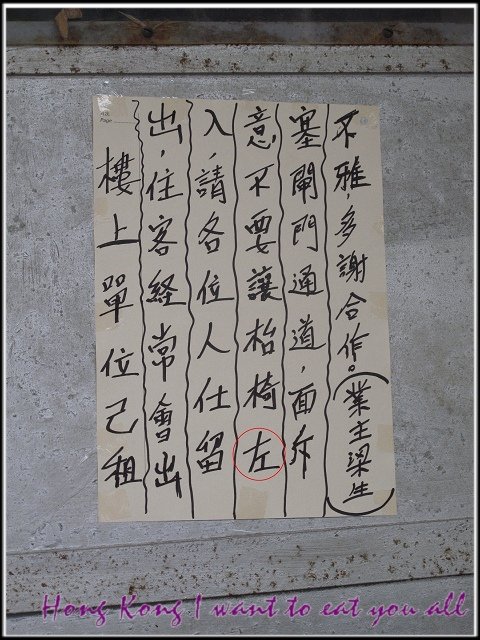 Page
樓上單位己租
出，住客経常會出
入，請各位人仕留
意不要讓枱椅左
塞閘門通道，面斥
不雅，多謝合作。（業主梁生）
Hong Kong I want to eat you all